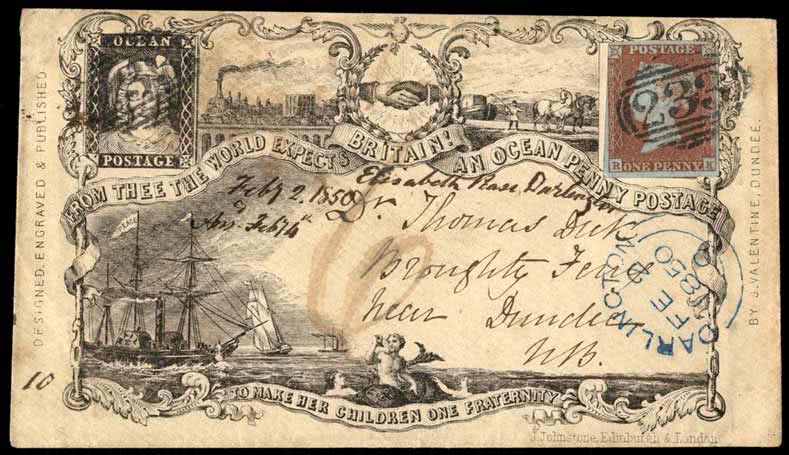 OCEAN
POSTAGE
POSTAGE
233
ONE PENNY
BRITAIN!
FROM THEE THE WORLD EXPECTS AN OCEAN PENNY POSTAGE
DESIGNED, ENGRAVED & PUBLISHED
BY J. VALENTINE, DUNDEE.
Feby 2. 1850 Elisabeth Pease Darlington
Ans. Feb 4th
Dr. Thomas Dick
Broughty Ferry
near Dundee
NB.
DARLINGTON
FE 2
1850
10
TO MAKE HER CHILDREN ONE FRATERNITY
J. Johnstone, Edinburgh & London